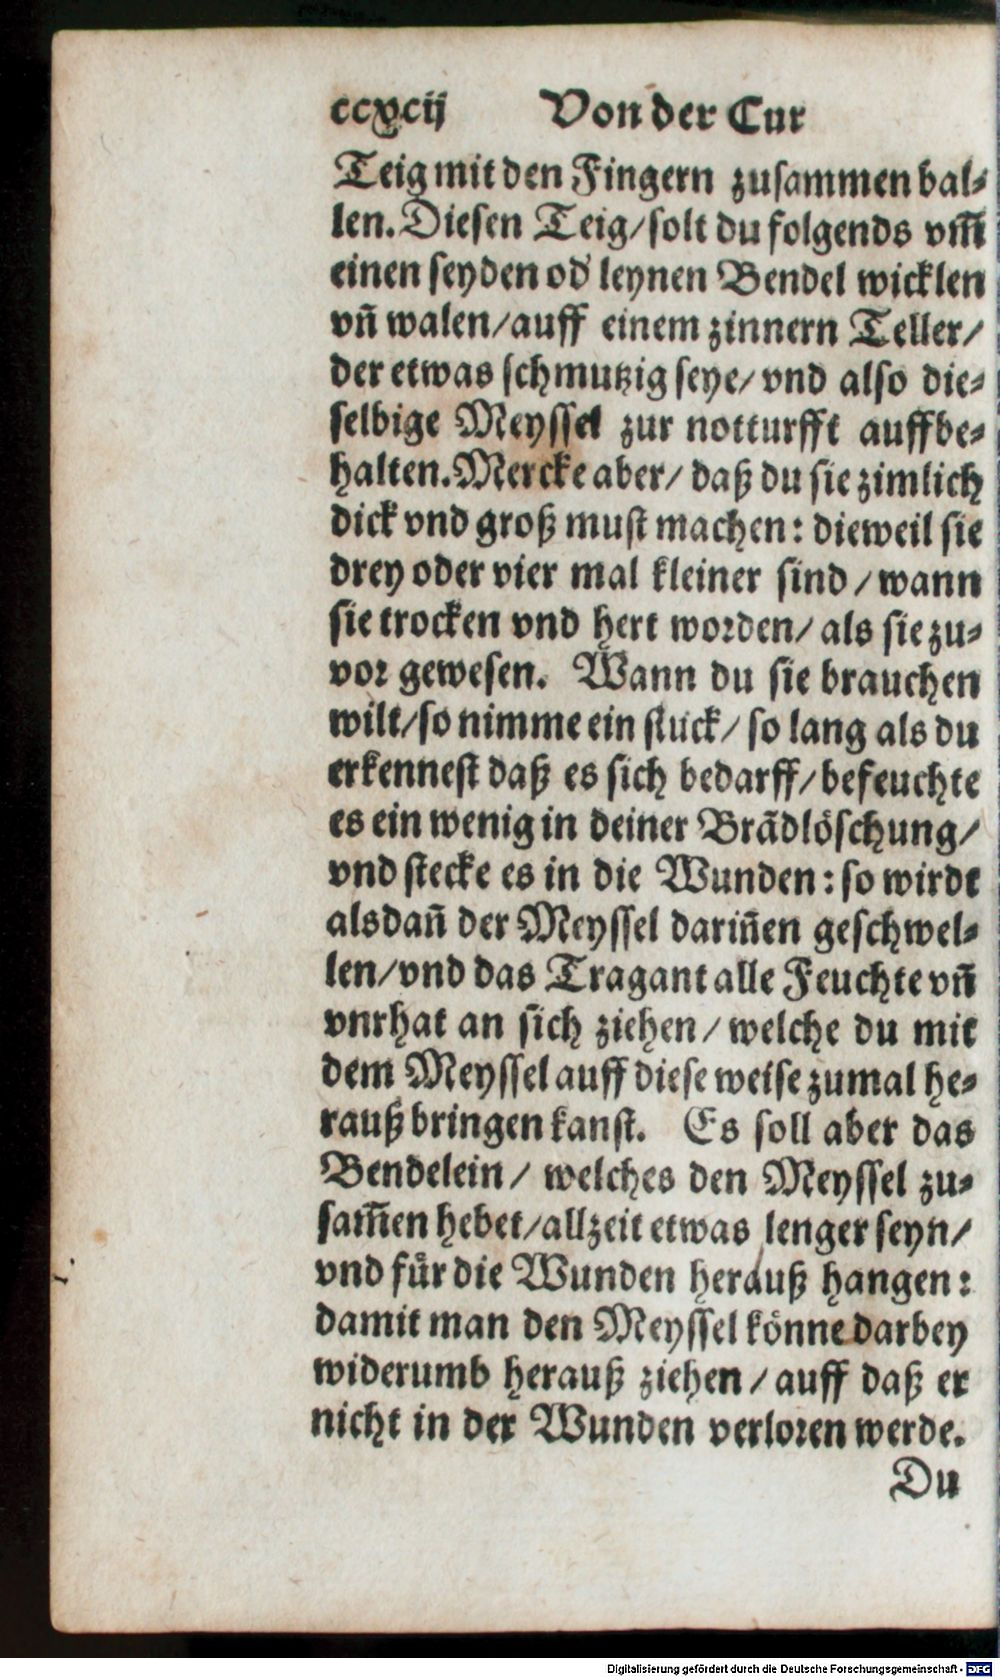 ccxcij Von der Cur
Teig mit den Fingern zusammen bal⸗
len. Diesen Teig/ solt du folgends vm̃
einen seyden od' leynen Bendel wicklen
vñ walen/ auff einem zinnern Teller/
der etwas schmutzig seye/ vnd also die⸗
selbige Meyssel zur notturfft auffbe⸗
halten. Mercke aber/ daß du sie zimlich
dick vnd groß must machen: dieweil sie
drey oder vier mal kleiner sind/ wann
sie trocken vnd hert worden/ als sie zu⸗
vor gewesen. Wann du sie brauchen
wilt/ so nimme ein stuck/ so lang als du
erkennest daß es sich bedarff/ befeuchte
es ein wenig in deiner Brãdlöschung/
vnd stecke es in die Wunden: so wirdt
alsdañ der Meyssel dariñen geschwel⸗
len/ vnd das Tragant alle Feuchte vñ
vnrhat an sich ziehen/ welche du mit
dem Meyssel auff diese weise zumal he⸗
rauß bringen kanst. Es soll aber das
Bendelein/ welches den Meyssel zu⸗
sam̃en hebet/ allzeit etwas lenger seyn/
vnd für die Wunden herauß hangen:
damit man den Meyssel könne darbey
widerumb herauß ziehen/ auff daß er
nicht in der Wunden verloren werde.
Du
Digitalisierung gefördert durch die Deutsche Forschungsgemeinschaft - DFG